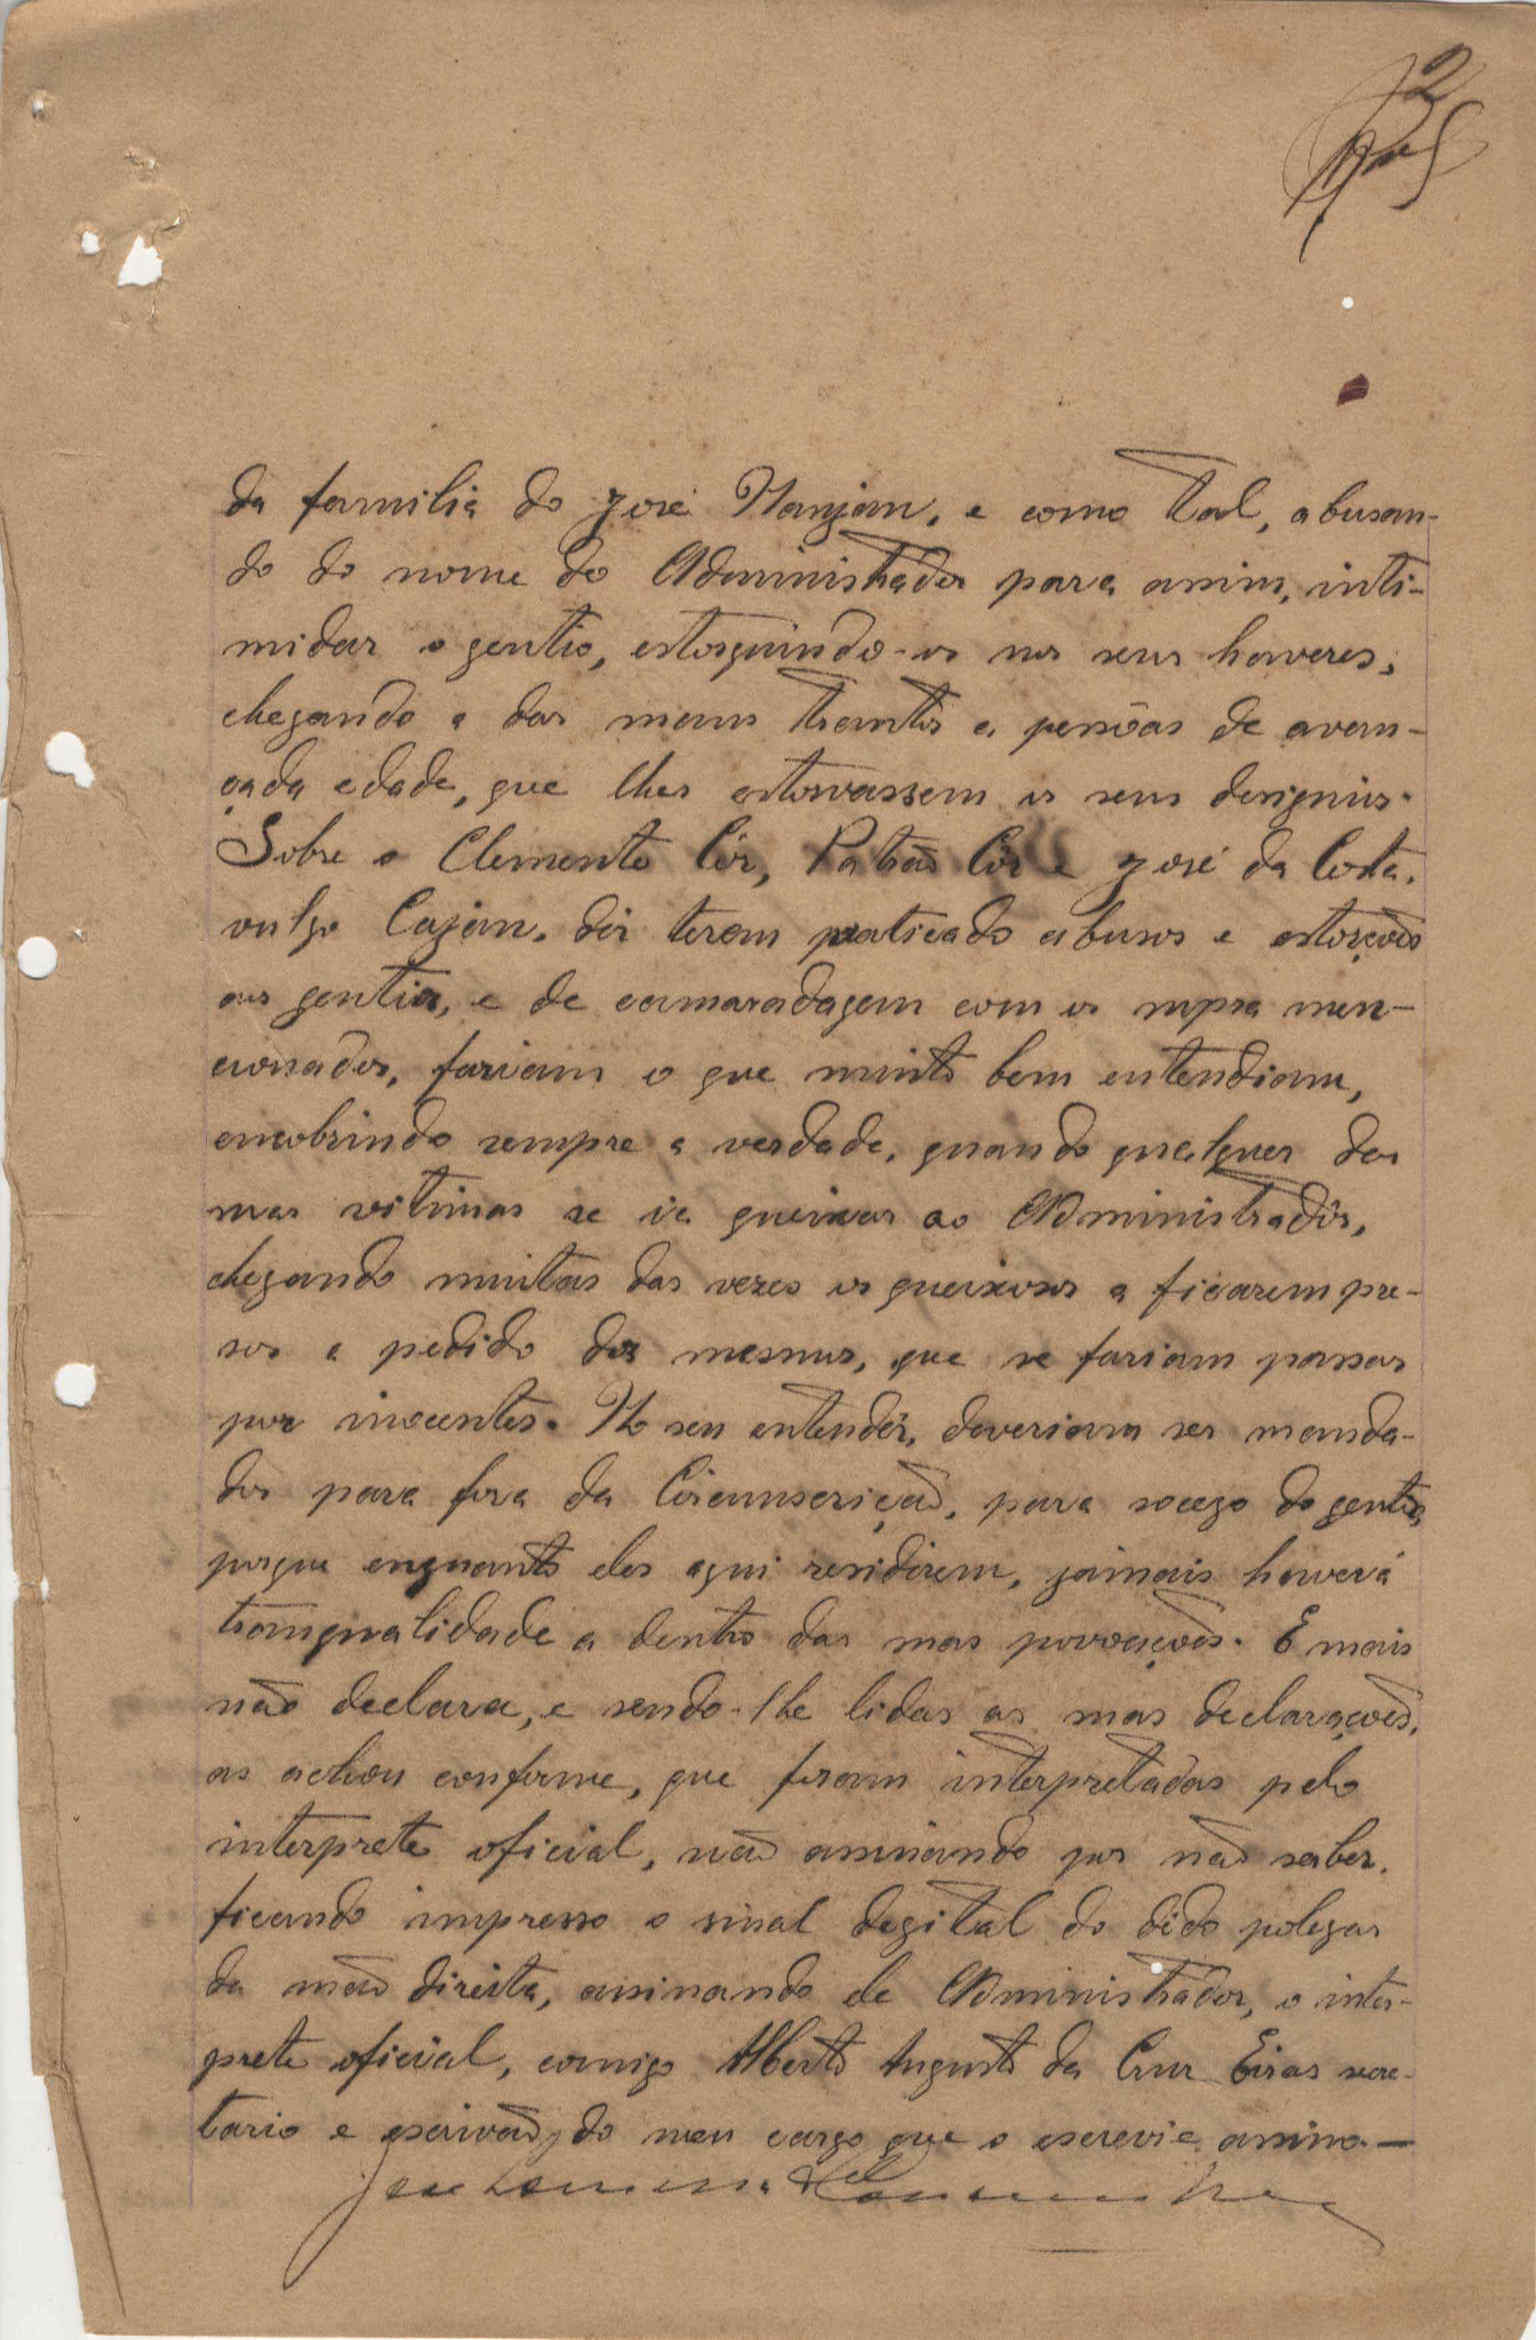 2
da familia do José Nanjan, e como tal, abusan-
do do nome do Administrador para assim, inti-
midar o gentio, estorquindo-os nos seus haveres,
chegando a dar maus tratos a pessôas de avan-
çada edade, que lhes estorvassem os seus designios.
Sobre o Clemente Côr, Patrão Côr e José da Costa,
vulgo Cajan, diz terem praticado abusos e estorçoẽs
aos gentios, e de camaradagem com os supra men-
cionados, faziam o que muito bem entendiam,
encobrindo sempre a verdade, quando qualquer das
suas vitimas se ia queixar ao Administradôr,
chegando muitas das vezes os queixosos a ficarem pre-
sos a pedido dos mesmos, que se faziam passar
por inocentes. No seu entendêr, deveriam ser manda-
dos para fora da Circunscrição, para socego do gentio,
porque enquanto eles aqui residirem, jamais haverá
tranqualidade a dentro das suas povoaçoẽs. E mais
não declara, e sendo-lhe lidas as suas declaraçoẽs,
as achou conforme, que foram interpretadas pelo
interprete oficial, não assinando por não saber,
ficando impresso o sinal degital do dido polegar
da mão direita, assinando ele Administrador, o inter-
prete oficial, comigo Alberto Augusto da Cruz Eiras secre-
tario e escrivão, do meu cargo que o escrevi e assino.—